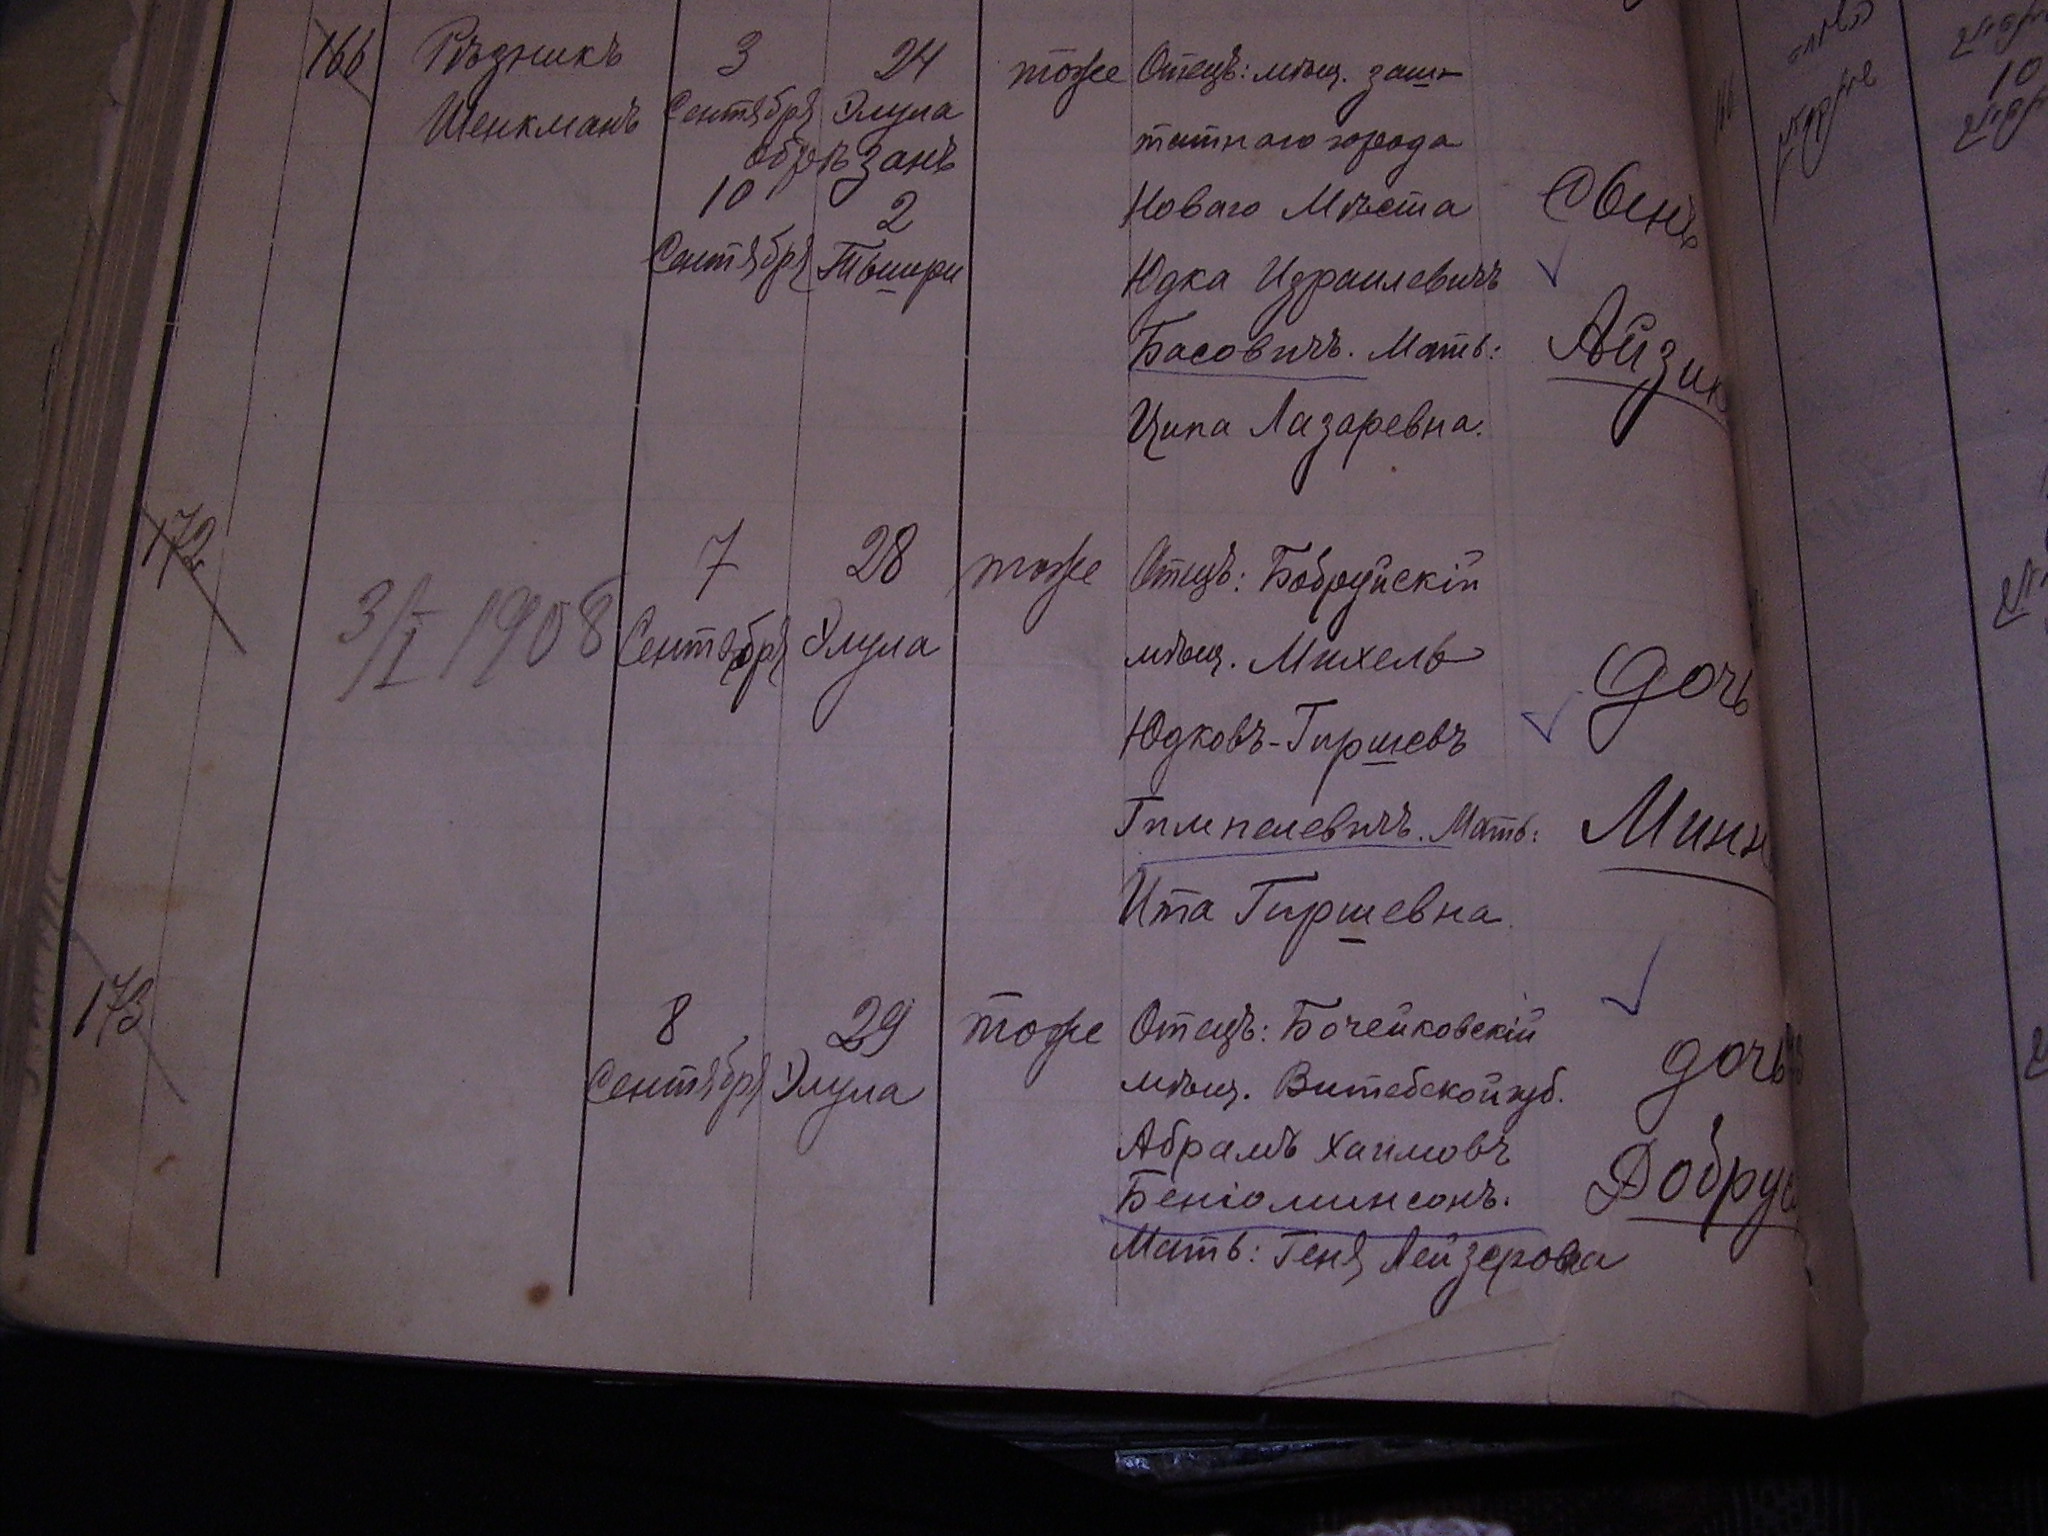 166 Рѣзникъ 3 24 тоже Отецъ: мѣщ. заш-
Шенкманъ Сентября Элула татнаго города
обрѣзанъ
10 2 Новаго Мѣста Сынъ
Сентября Тышри Юдка Израилевичъ
Басовичъ. Мать: Айзик
Ципа Лазаревна.
172 7 28 тоже Отецъ: Бобруйскій
3/I 1908 Сентября Элула мѣщ. Михель дочь
Юдковъ-Гиршевъ
Гимпелевичъ. Мать: Минн
Ита Гиршевна.
173 8 29 тоже Отецъ: Бочейковскій дочь
Сентября Элула мѣщ. Витебской губ.
Абрамъ Хаимовъ Добрус
Беніоминсонъ.
Мать: Геня Лейзеровна
10